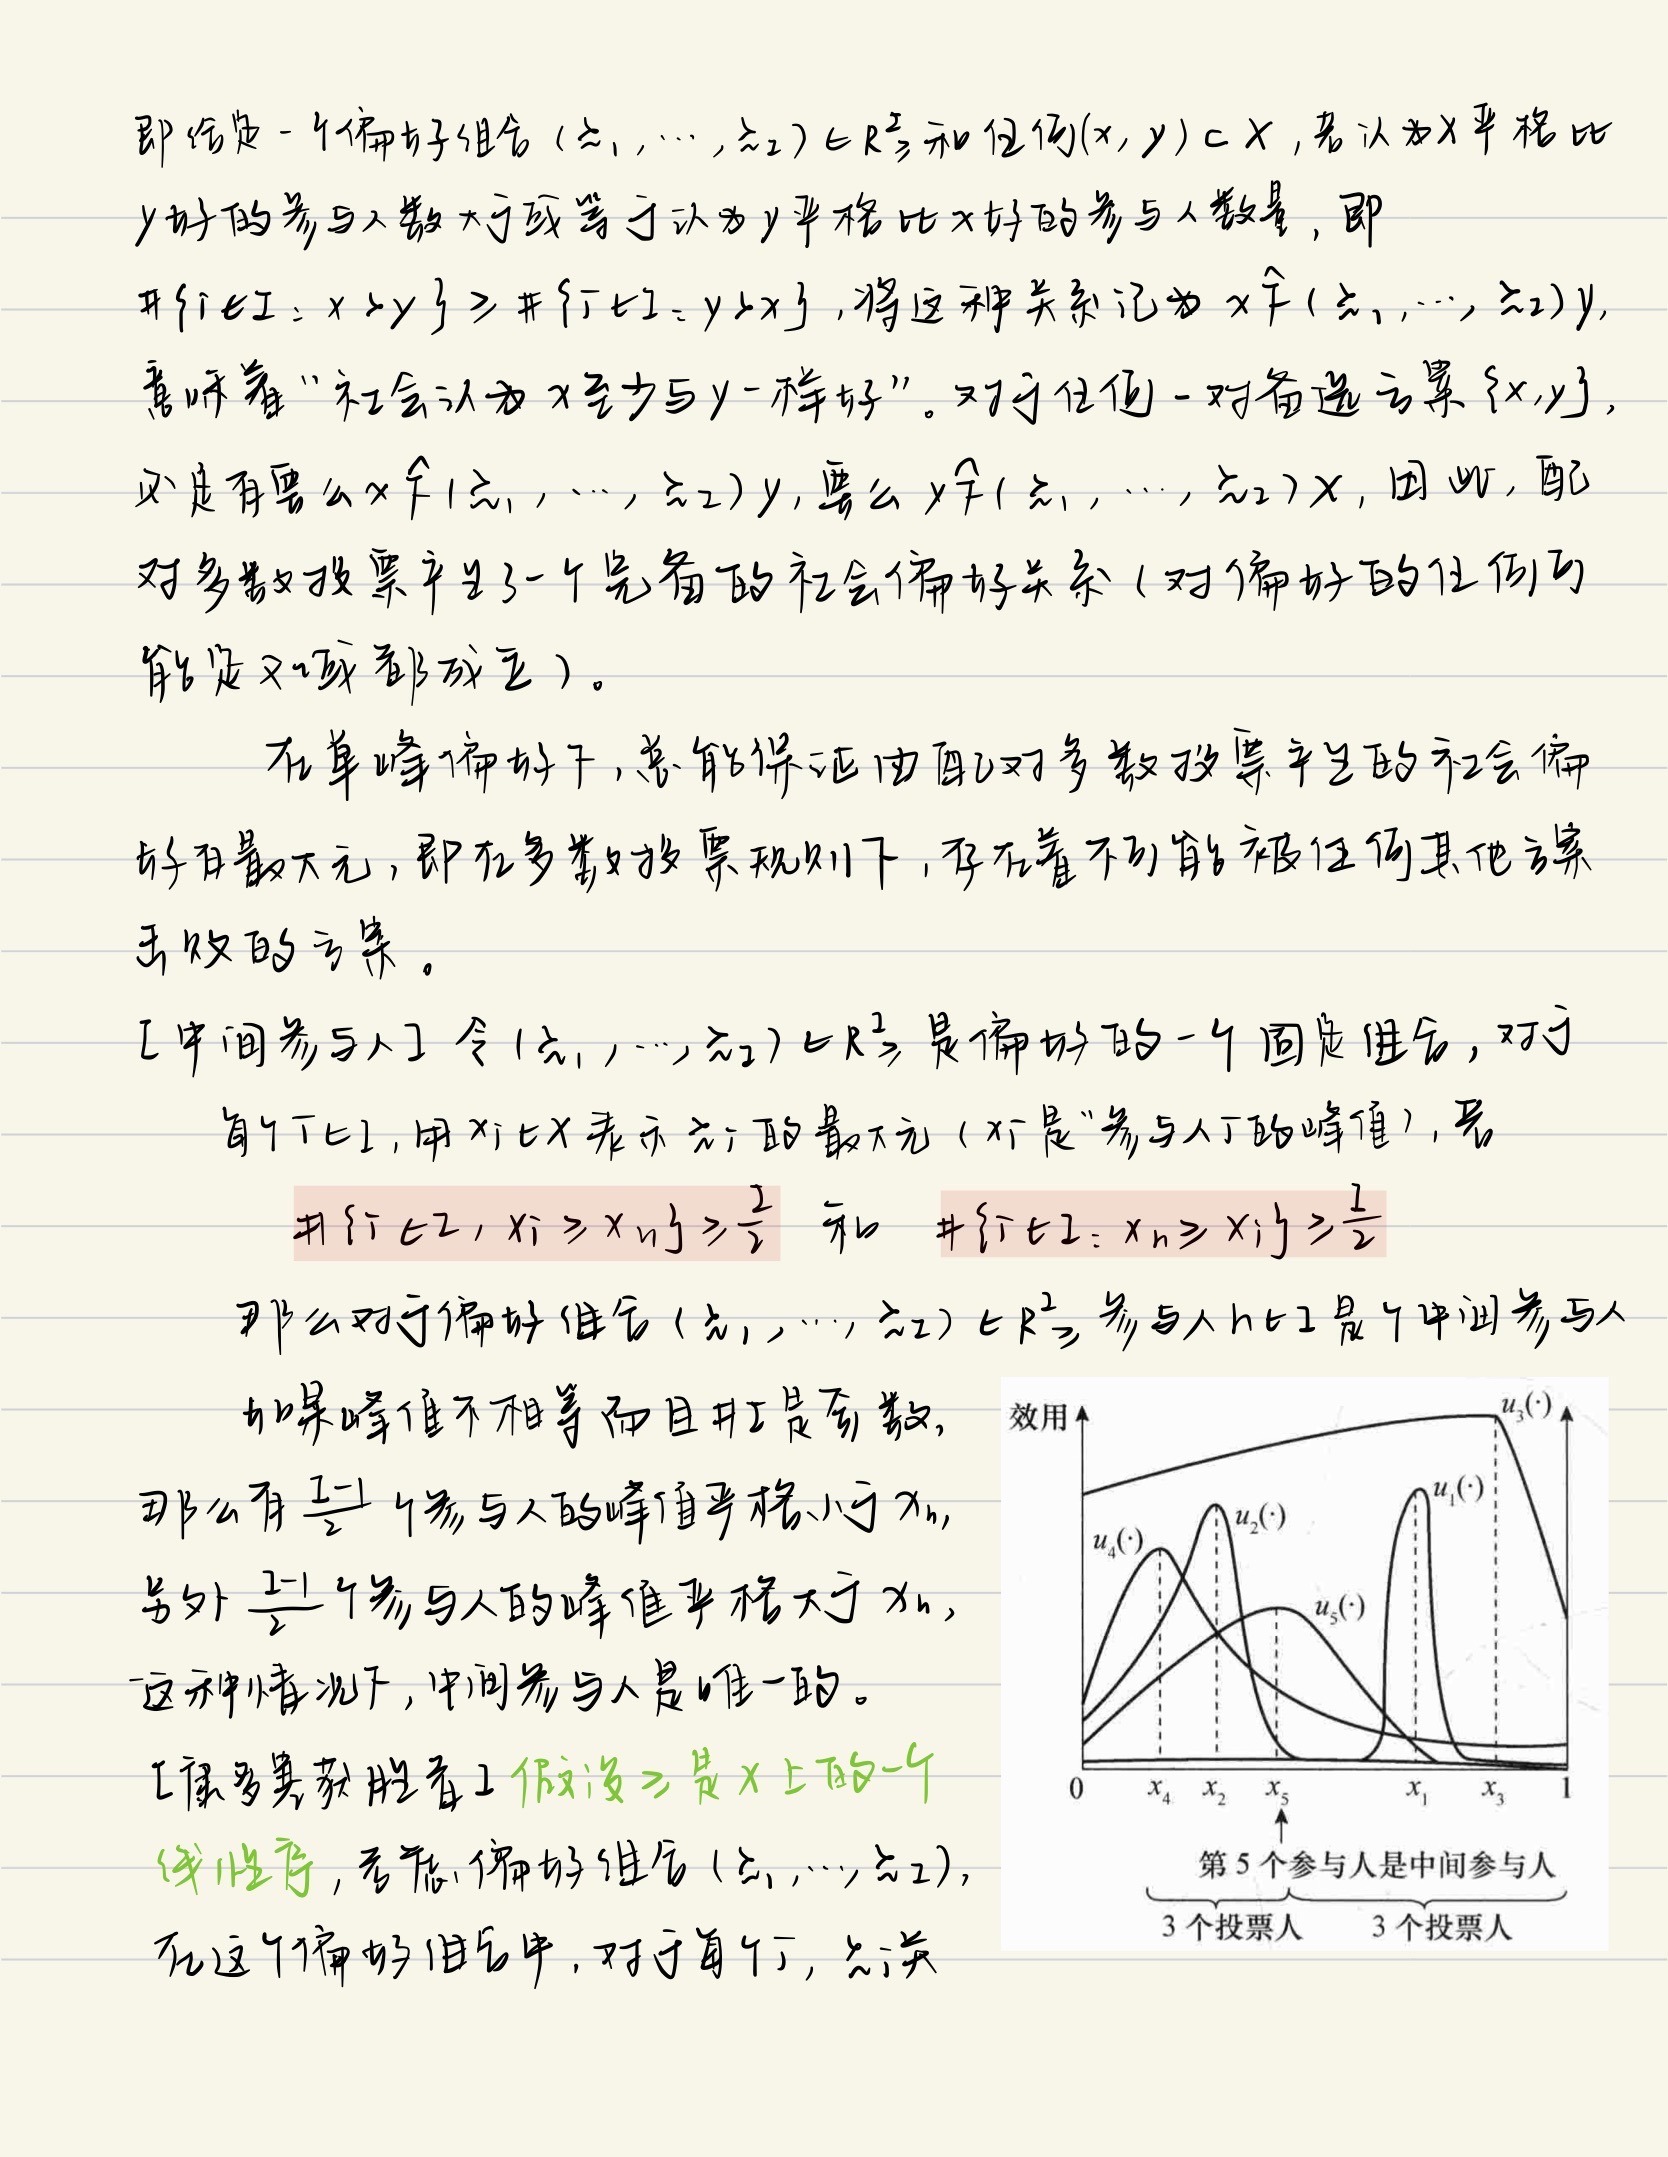 即给定一个偏好组合 (≿₁, ⋯, ≿_I) ∈ R^I_≥ 和任何(x, y) ⊂ X, 若认为x严格比
y好的参与人数大于或等于认为y严格比x好的参与人数量, 即
#{i∈I: x≻y} ≥ #{i∈I: y≻x}, 将这种关系记为 x F̂(≿₁, ⋯, ≿_I) y,
意味着“社会认为x至少与y一样好”。对于任何一对备选方案{x,y},
必定有要么x F̂(≿₁, ⋯, ≿_I) y, 要么 y F̂(≿₁, ⋯, ≿_I) x, 因此, 配
对多数投票产生了一个完备的社会偏好关系(对偏好的任何可
能定义域都成立)。
在单峰偏好下, 总能保证由配对多数投票产生的社会偏
好有最大元, 即在多数投票规则下, 存在着不可能被任何其他方案
击败的方案。
[中间参与人] 令(≿₁, ⋯, ≿_I) ∈ R^I_≥ 是偏好的一个固定组合, 对于
每个i∈I, 用x_i∈X表示≿_i的最大元(x_i是“参与人i的峰值), 若
#{i∈I, x_i ≥ x_h} ≥ I/2 和 #{i∈I: x_h ≥ x_i} ≥ I/2
那么对于偏好组合(≿₁, ⋯, ≿_I) ∈ R^I_≥ 参与人h∈I是个中间参与人
如果峰值不相等而且#I是奇数,
那么有 (I-1)/2 个参与人的峰值严格小于x_h,
另外 (I-1)/2 个参与人的峰值严格大于x_h,
这种情况下, 中间参与人是唯一的。
[康多塞获胜者] 假设≥是X上的一个
线性序, 考虑偏好组合(≿₁, ⋯, ≿_I),
在这个偏好组合中, 对于每个i, ≿_i关
效用
u₃(·)
u₁(·)
u₂(·)
u₄(·)
u₅(·)
0 x₄ x₂ x₅ x₁ x₃ 1
第 5 个参与人是中间参与人
3 个投票人 3 个投票人